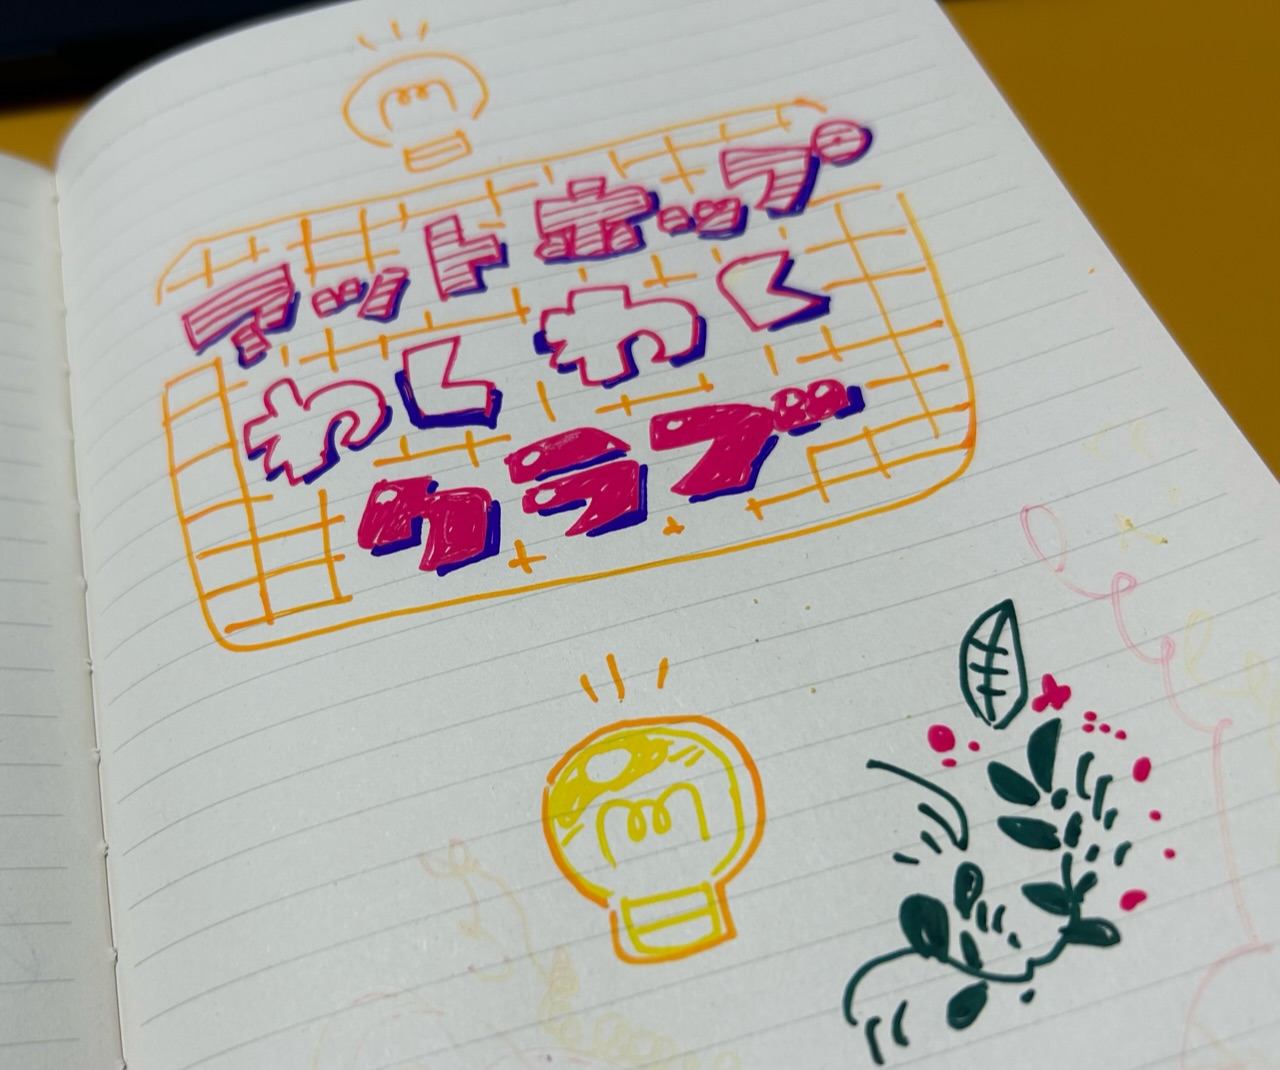 アットホップ
わくわく
クラブ